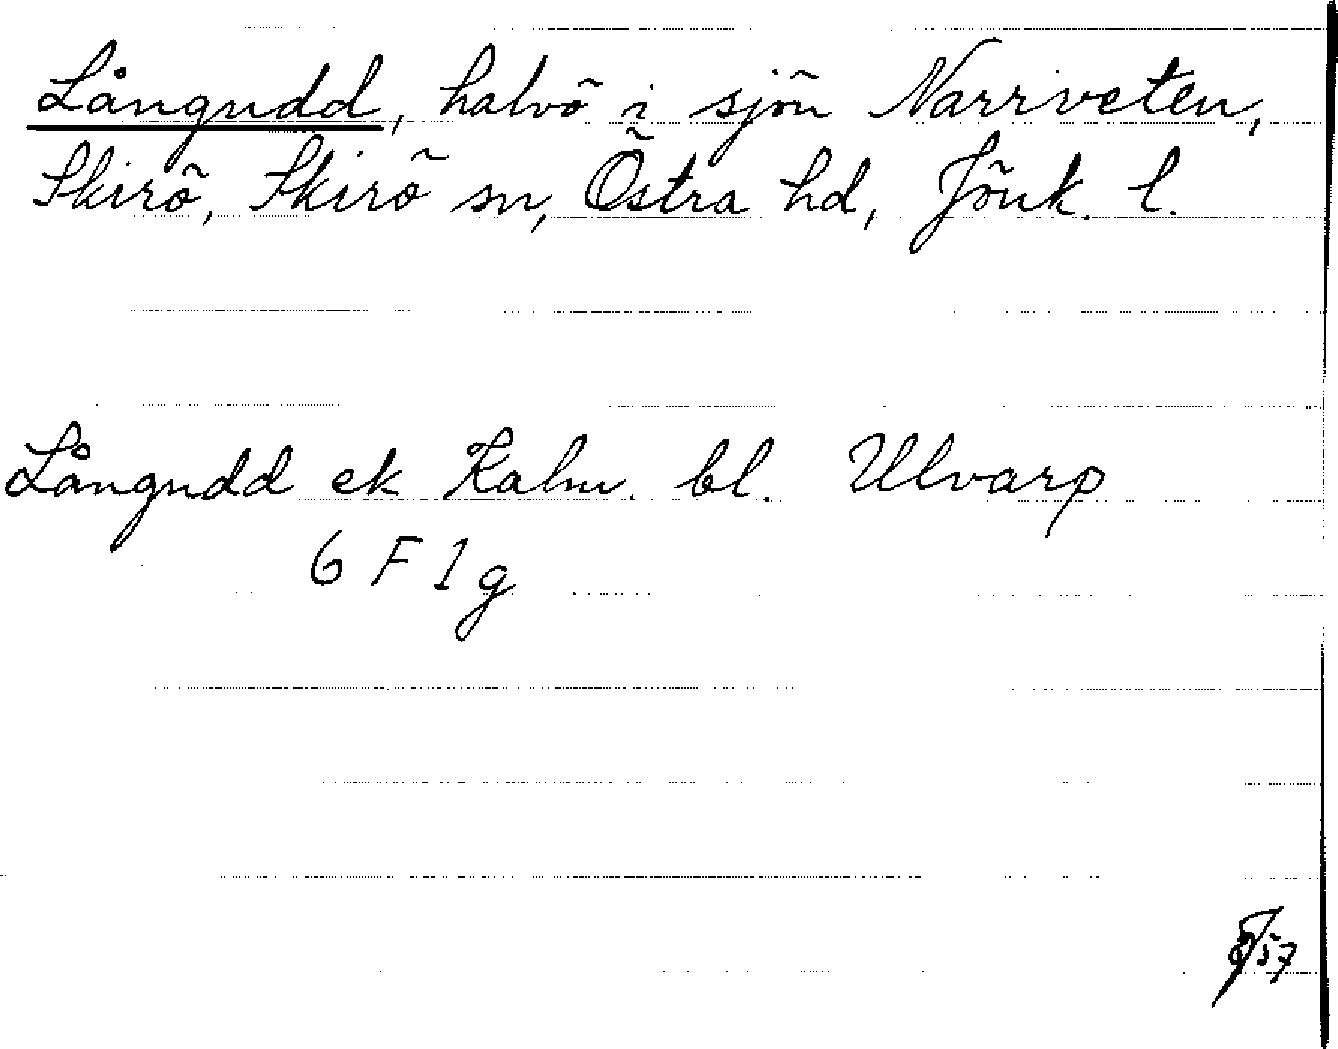 Långudd, halvö i sjön Narrveten,
Skirö, Skirö sn, Östra hd, Jönk. l.
Långudd ek Kalm. bl. Ulvarp
6 F 1 g
57